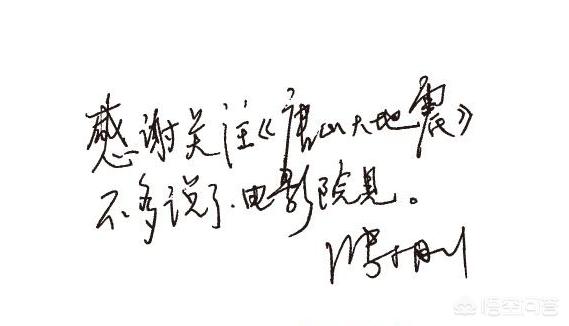 感谢关注《唐山大地震》
不多说了.电影院见。
冯小刚
悟空问答